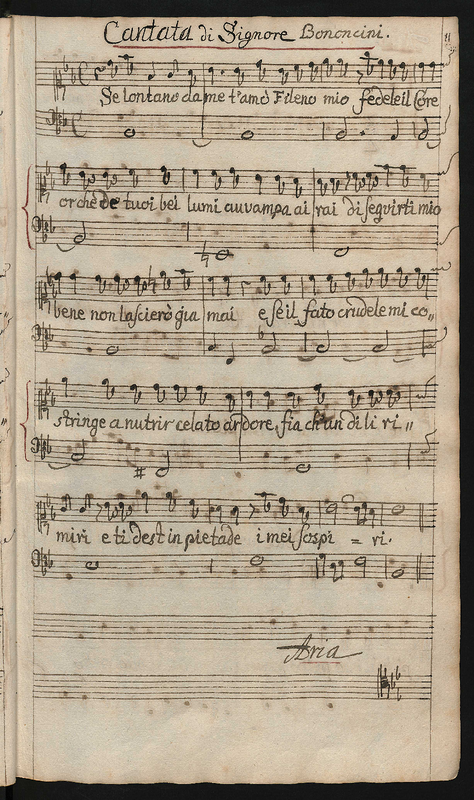 Cantata di Signore Bononcini.
Se lontano da me t'amò Fileno mio fedele il Core
or chè de tuoi bei lumi avvampa ai rai di seguirti mio
bene non lascierò gia mai e se il fato crudele mi co„
stringe a nutrir celato ardore, fia ch'un di li ri„
miri e ti desti in pietade i miei sospi = ri.
Aria